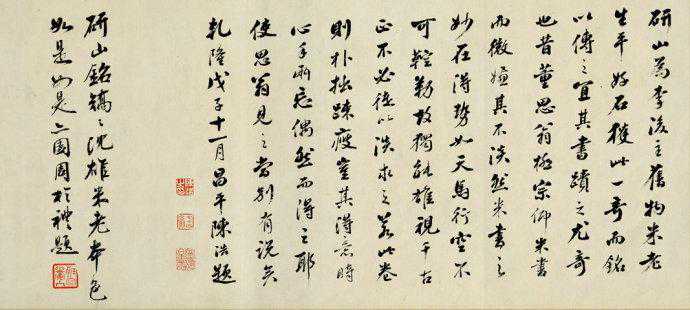 研山為李後主舊物米老
生平好石獲此一奇而銘
以傳之宜其書蹟之尤奇
也昔董思翁極宗仰米書
而微嫌其不淡然米書之
妙在得勢如天馬行空不
可鞚勒故獨能雄視千古
正不必徒以淡求之若此卷
則朴拙疎瘦豈其得意時
心手兩忘偶然而得之耶
使思翁見之當別有說矣
乾隆戊子十一月昌平陳浩題
研山銘鐫之沈雄米老本色
如是如是二園周於禮題